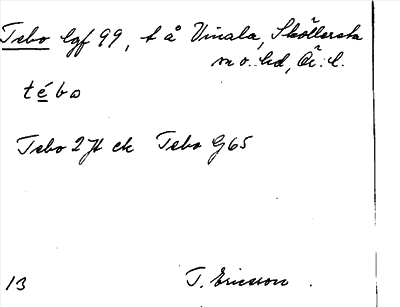 Tebo lgf 99, t å Vinala, Sköllersta
sn o. hd, Ör. l.
tébo
Tebo 2 Jt ek Tebo G65
13 T. Ericsson.